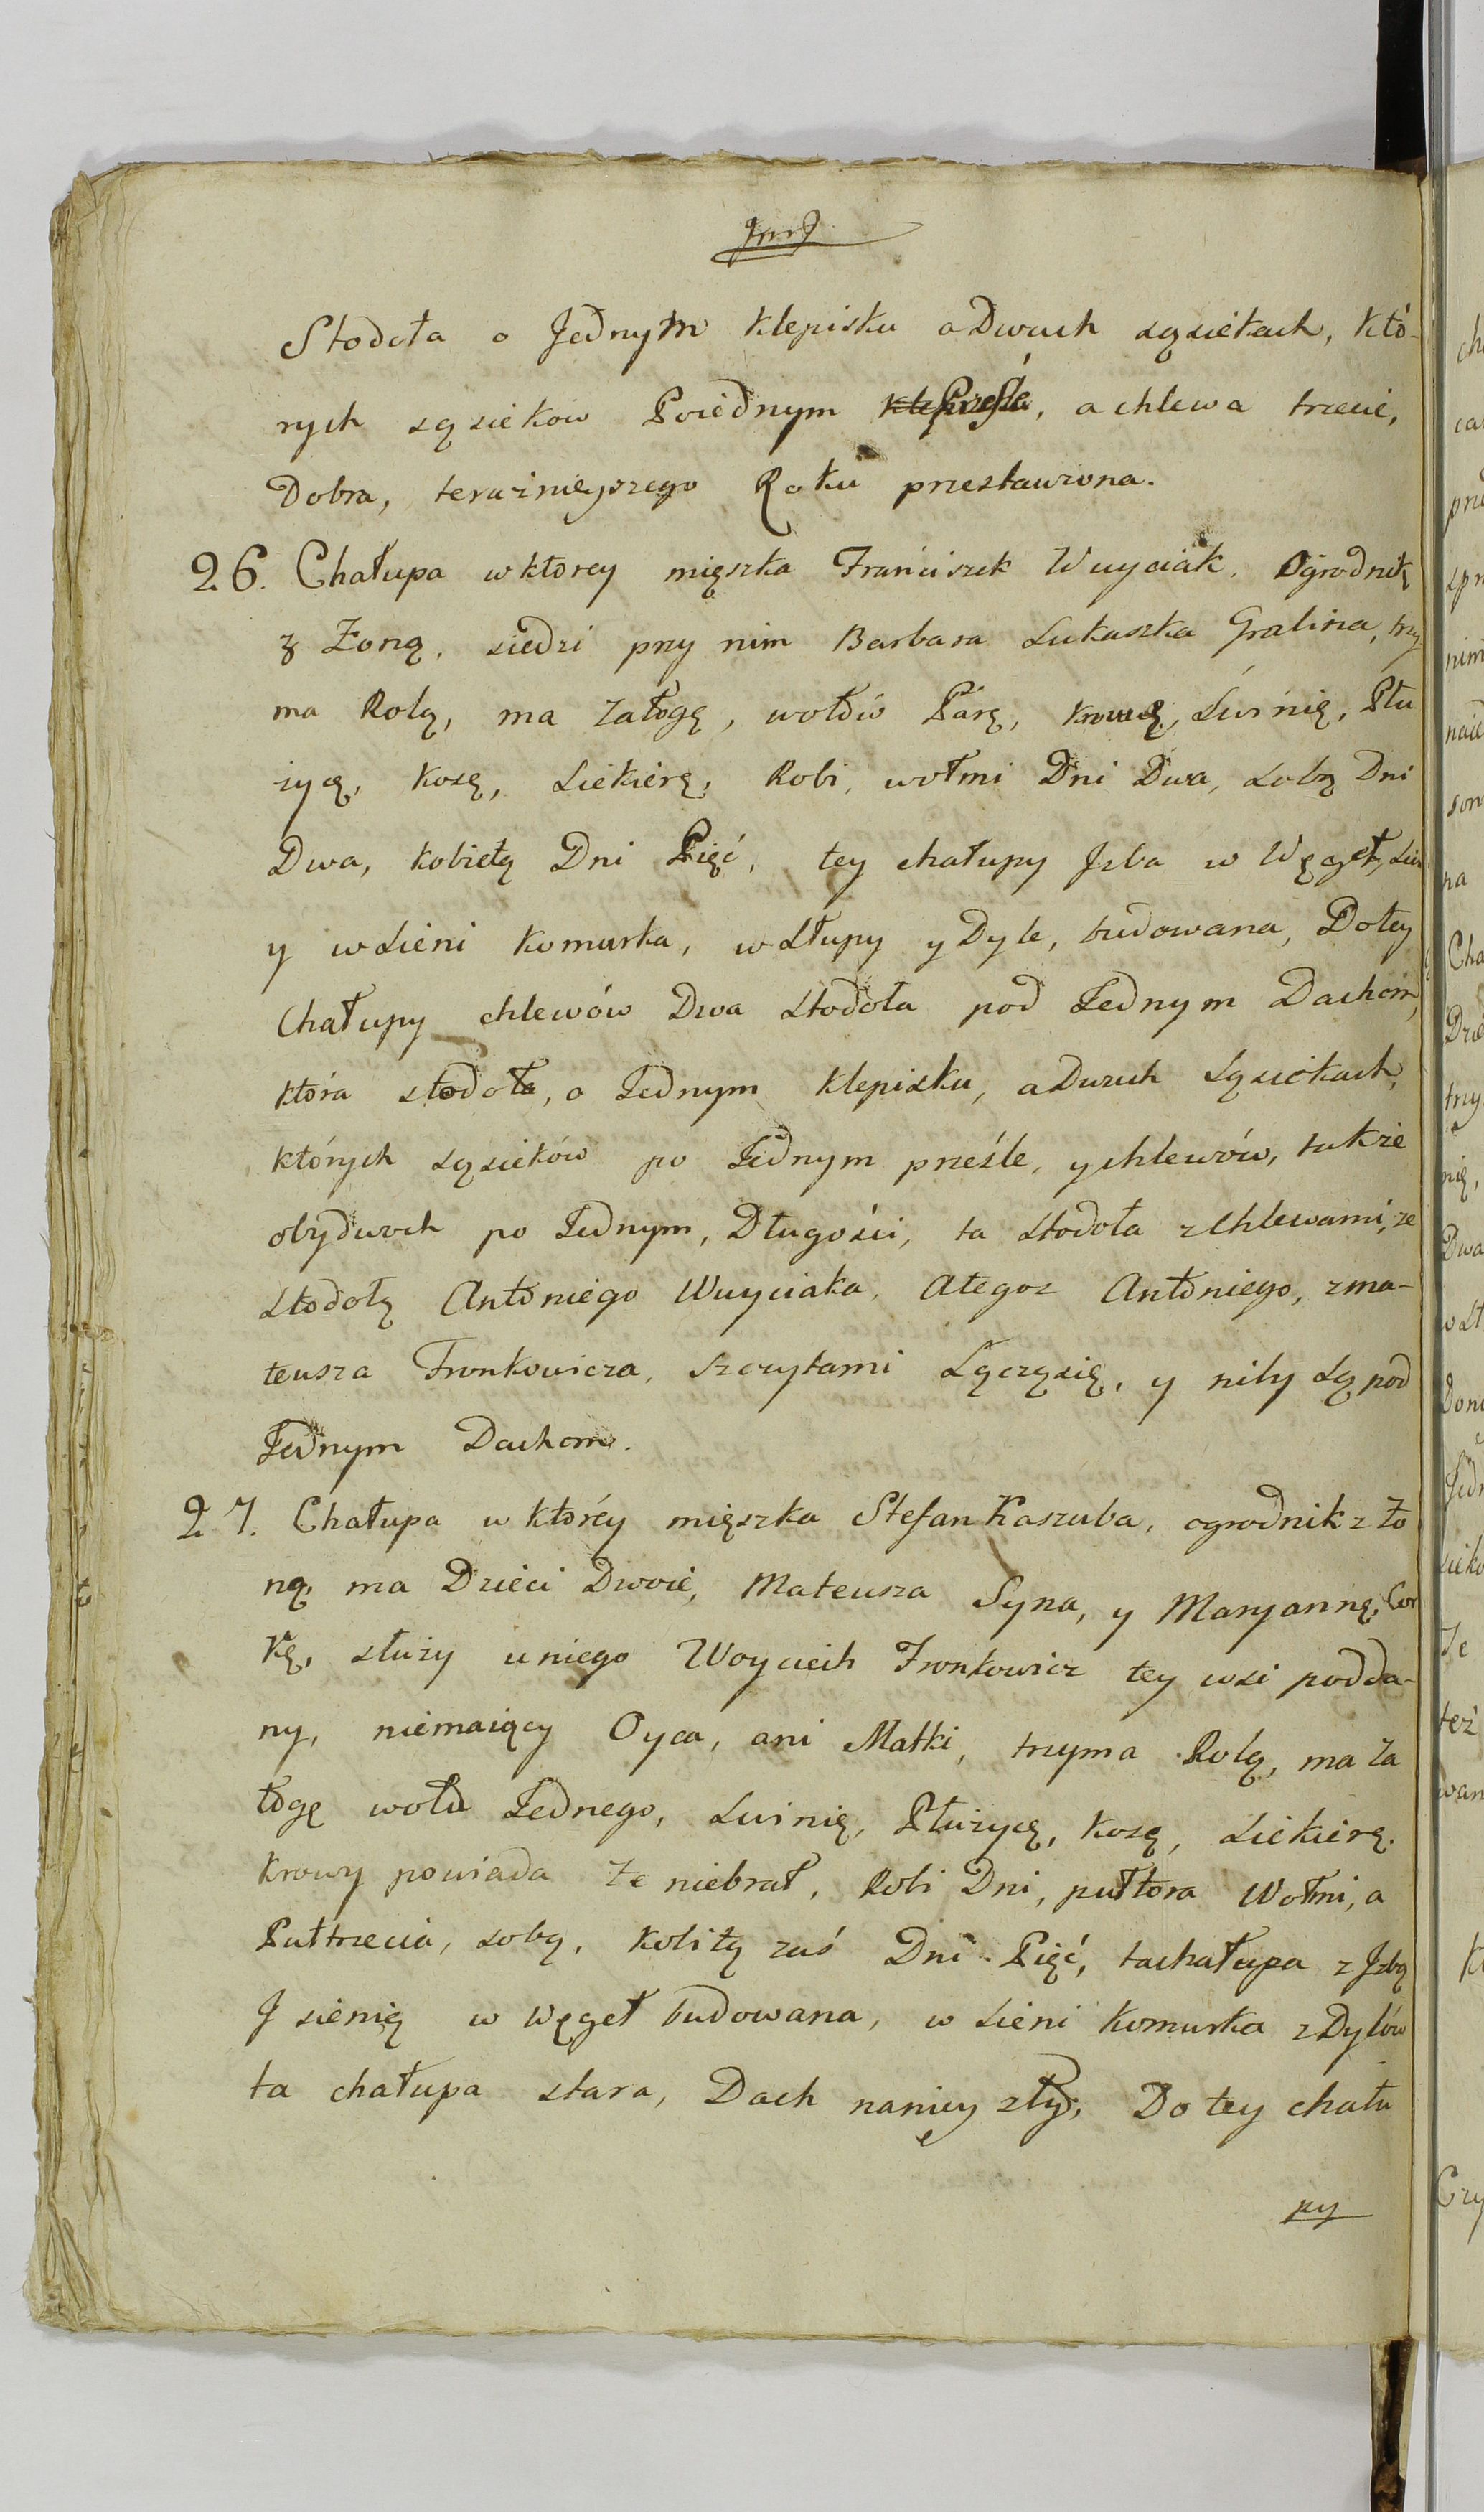 Stodoła o Jednym klepisku a Dwuch sąsiekach, któ-
rych sąsieków Poiednym Prześle, a chlewa trzecie,
Dobra, teraznieyszego Roku przestawiona.
26. Chałupa wktorey mięszka Franciszek Wuyciak. Ogrodnik
z Żoną, siedzi przy nim Barbara Łukaszka Gralina, trzy
ma Rolą, ma załogę, wołów Parę, krowę, Swinię, Płu
życę, kosę, Siekierę, Robi, wołmi Dni Dwa, Sobą Dni
Dwa, kobietą Dni Pięć, tey chałupy Jzba w Węgeł, Sień
y wSieni komurka, wSłupy y Dyle, budowana, Dotey
Chałupy chlewów Dwa Stodoła pod Jednym Dachem,
która stodoła, o Jednym klepisku, a Dwuch Sąsiekach,
których sąsieków po Jednym prześle, y chlewów, także
obydwoch po Jednym, Długości, ta Stodoła z Chlewami, ze
Stodołą Antoniego Wuyciaka, Ategoz Antoniego, zma-
teusza Fronkowicza, szczytami Łączysię, y niby Są pod
Jednym Dachem.
27. Chałupa w którey mięszka Stefan Kaszuba, ogrodnik z Żo
ną, ma Dzieci Dwoie, Mateusza Syna, y Maryannę, Cor
kę, służy uniego Woyciech Fronkowicz tey wsi podda-
ny, niemaiący Oyca, ani Matki, trzyma Rolą, ma za
łogę wołu Jednego, Swinię, Płużycę, kosę, Siekierę.
krowy powiada że niebrał, Robi Dni, pułtora Wołmi, a
Pułtrzecia, sobą, kobitą zaś Dni Pięć, tachałupa z Jzbą
J sienią w węgeł budowana, w Sieni komurka zDylów
ta chałupa stara, Dach naniey zły; Do tey chału
py